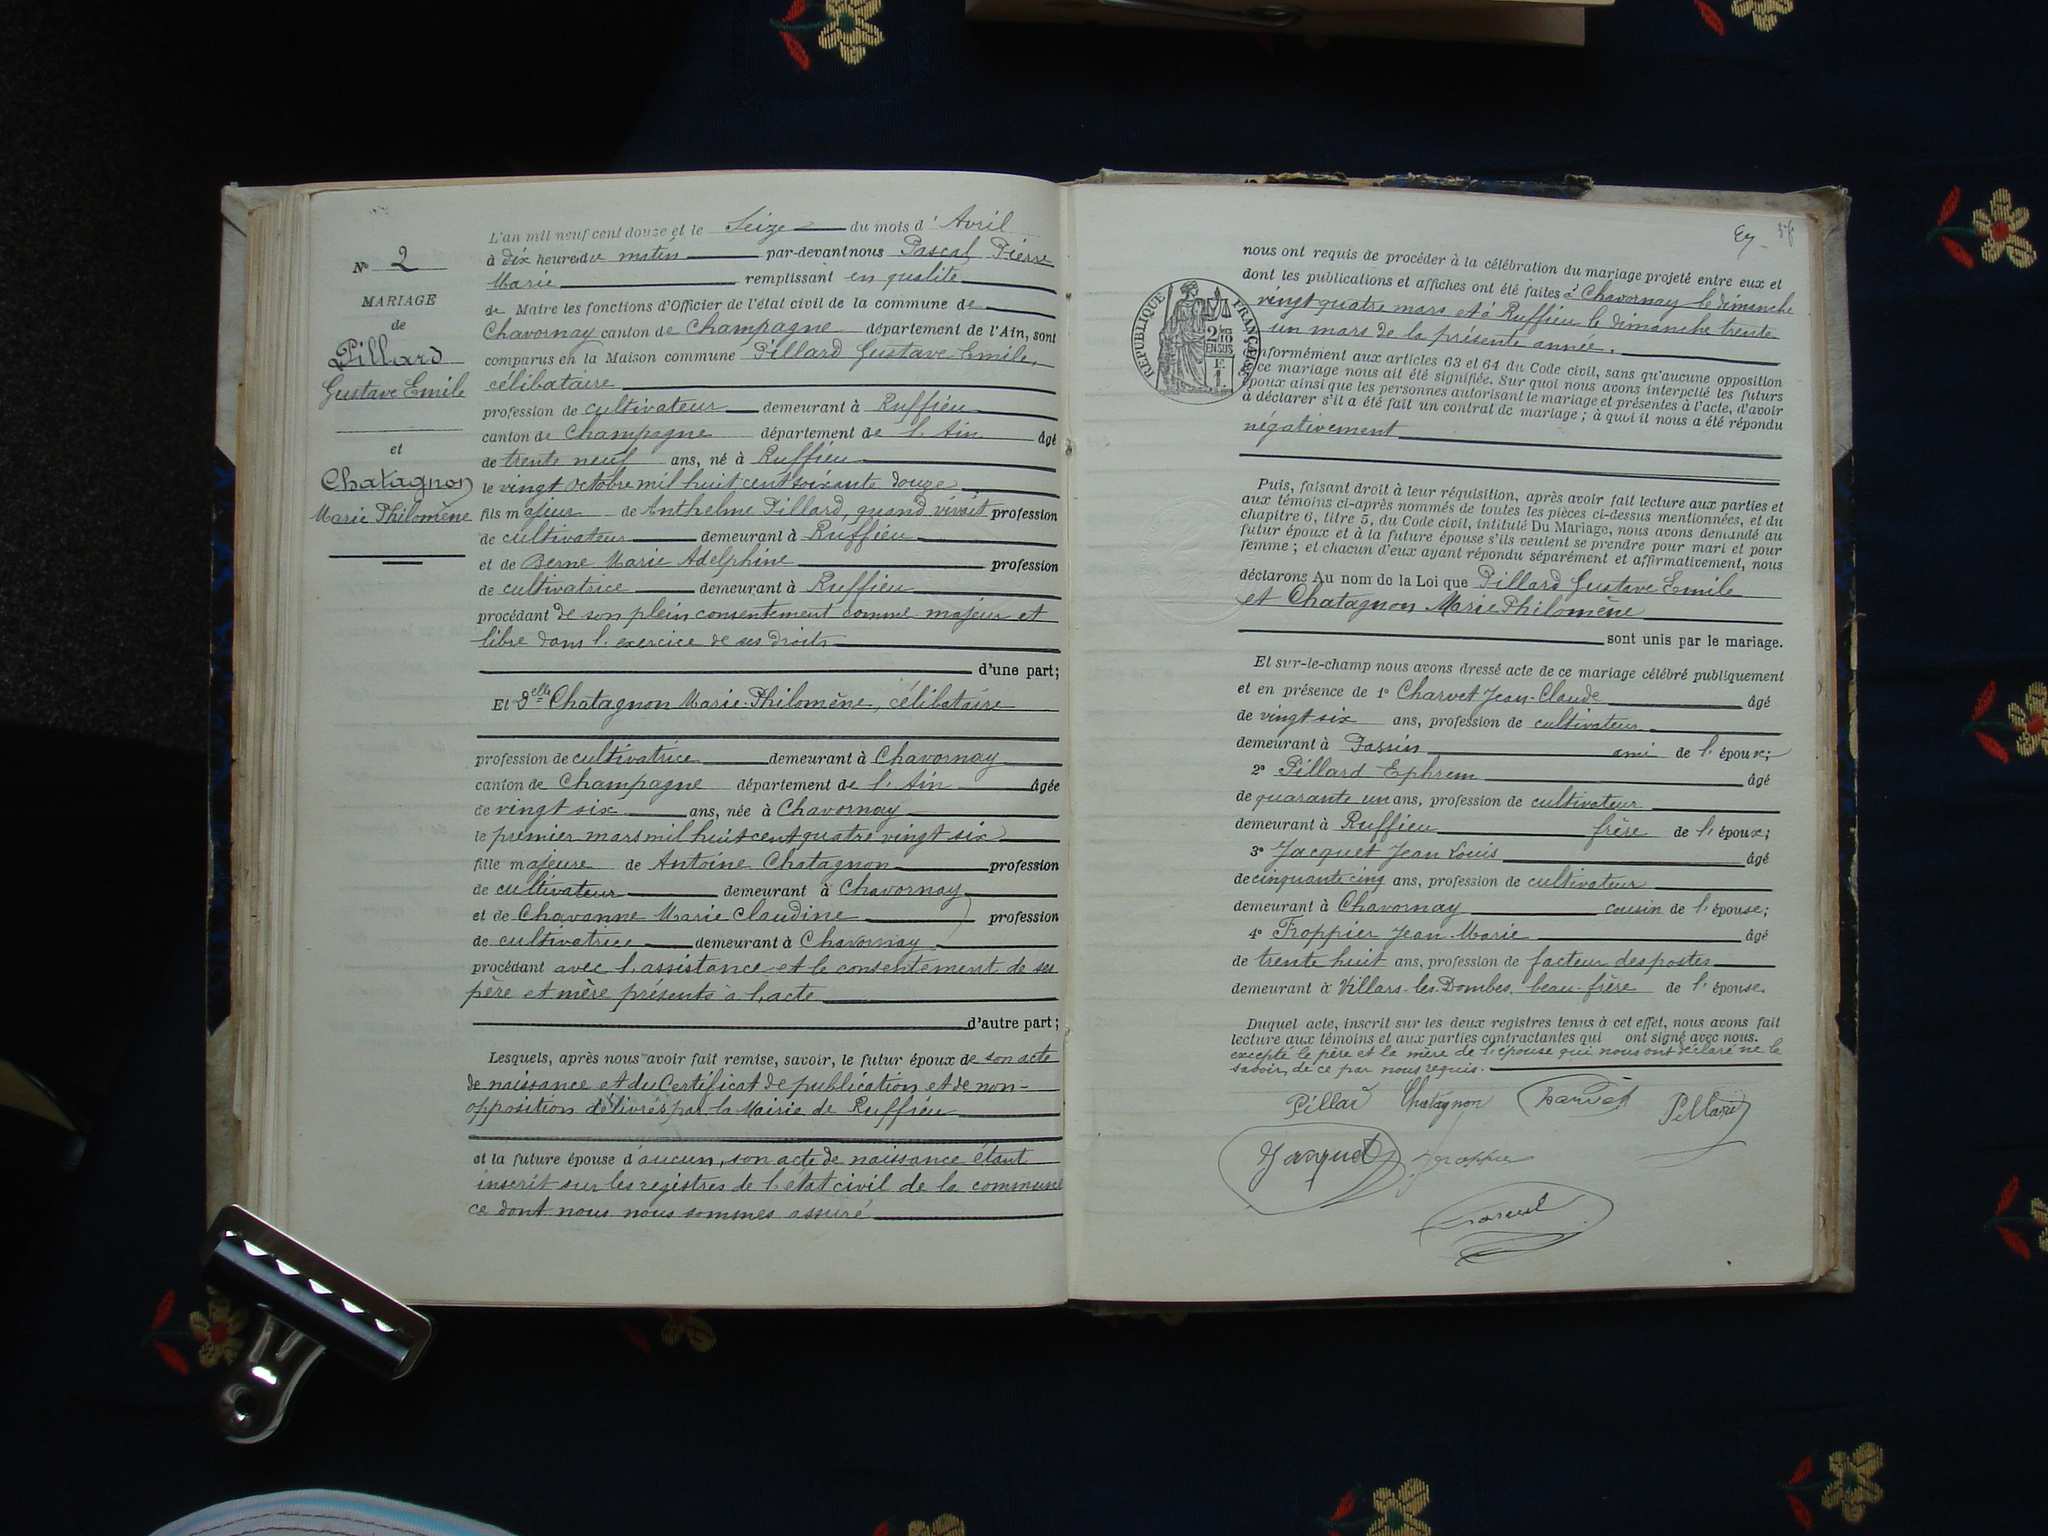 N° 2
MARIAGE
de
Pillard
Gustave Emile
et
Chatagnon
Marie Philomène
L'an mil neuf cent douze et le Seize du mois d'Avril
à dix heures du matin par-devant nous Pascal Pierre
Marie remplissant en qualité
de Maire les fonctions d'Officier de l'état civil de la commune de
Chavornay canton de Champagne département de l'Ain, sont
comparus en la Maison commune Pillard Gustave Emile,
célibataire
profession de cultivateur demeurant à Ruffieu
canton de Champagne département de l'Ain âgé
de trente neuf ans, né à Ruffieu
le vingt Octobre mil huit cent soixante douze
fils majeur de Anthelme Pillard, quand vivait profession
de cultivateur demeurant à Ruffieu
et de Berne Marie Adelphine profession
de cultivatrice demeurant à Ruffieu
procédant de son plein consentement comme majeur et
libre dans l'exercice de ses droits
d'une part;
Et Delle Chatagnon Marie-Philomène, célibataire
profession de cultivatrice demeurant à Chavornay
canton de Champagne département de l'Ain âgée
de vingt six ans, née à Chavornay
le premier mars mil huit cent quatre vingt six
fille majeure de Antoine Chatagnon profession
de cultivateur demeurant à Chavornay
et de Chavanne Marie Claudine profession
de cultivatrice demeurant à Chavornay
procédant avec l'assistance et le consentement de ses
père et mère présents à l'acte
d'autre part;
Lesquels, après nous avoir fait remise, savoir, le futur époux de son acte
de naissance et du Certificat de publication et de non-
opposition délivrés par la Mairie de Ruffieu
et la future épouse d'aucun, son acte de naissance étant
inscrit sur les registres de l'état civil de la commune
ce dont nous nous sommes assuré
nous ont requis de procéder à la célébration du mariage projeté entre eux et
dont les publications et affiches ont été faites à Chavornay le dimanche
vingt quatre mars et à Ruffieu le dimanche trente
un mars de la présente année.
RÉPUBLIQUE FRANÇAISE
2/10 EN SUS
1 F.
conformément aux articles 63 et 64 du Code civil, sans qu'aucune opposition
à ce mariage nous ait été signifiée. Sur quoi nous avons interpellé les futurs
époux ainsi que les personnes autorisant le mariage et présentes à l'acte, d'avoir
à déclarer s'il a été fait un contrat de mariage; à quoi il nous a été répondu
négativement
Puis, faisant droit à leur réquisition, après avoir fait lecture aux parties et
aux témoins ci-après nommés de toutes les pièces ci-dessus mentionnées, et du
chapitre 6, titre 5, du Code civil, intitulé Du Mariage, nous avons demandé au
futur époux et à la future épouse s'ils veulent se prendre pour mari et pour
femme; et chacun d'eux ayant répondu séparément et affirmativement, nous
déclarons Au nom de la Loi que Pillard Gustave Emile
et Chatagnon Marie Philomène
sont unis par le mariage.
Et sur-le-champ nous avons dressé acte de ce mariage célébré publiquement
et en présence de 1° Charvet Jean-Claude âgé
de vingt six ans, profession de cultivateur
demeurant à Passin ami de l'époux;
2° Pillard Ephrem âgé
de quarante un ans, profession de cultivateur
demeurant à Ruffieu frère de l'époux;
3° Jacquet Jean Louis âgé
de cinquante cinq ans, profession de cultivateur
demeurant à Chavornay cousin de l'épouse;
4° Froppier Jean-Marie âgé
de trente huit ans, profession de facteur des postes
demeurant à Villars-les-Dombes, beau-frère de l'épouse.
Duquel acte, inscrit sur les deux registres tenus à cet effet, nous avons fait
lecture aux témoins et aux parties contractantes qui ont signé avec nous.
excepté le père et la mère de l'épouse qui nous ont déclaré ne le
savoir, de ce par nous requis.
Pillard Chatagnon Charvet Pillard
Jacquet Froppier
Pascal